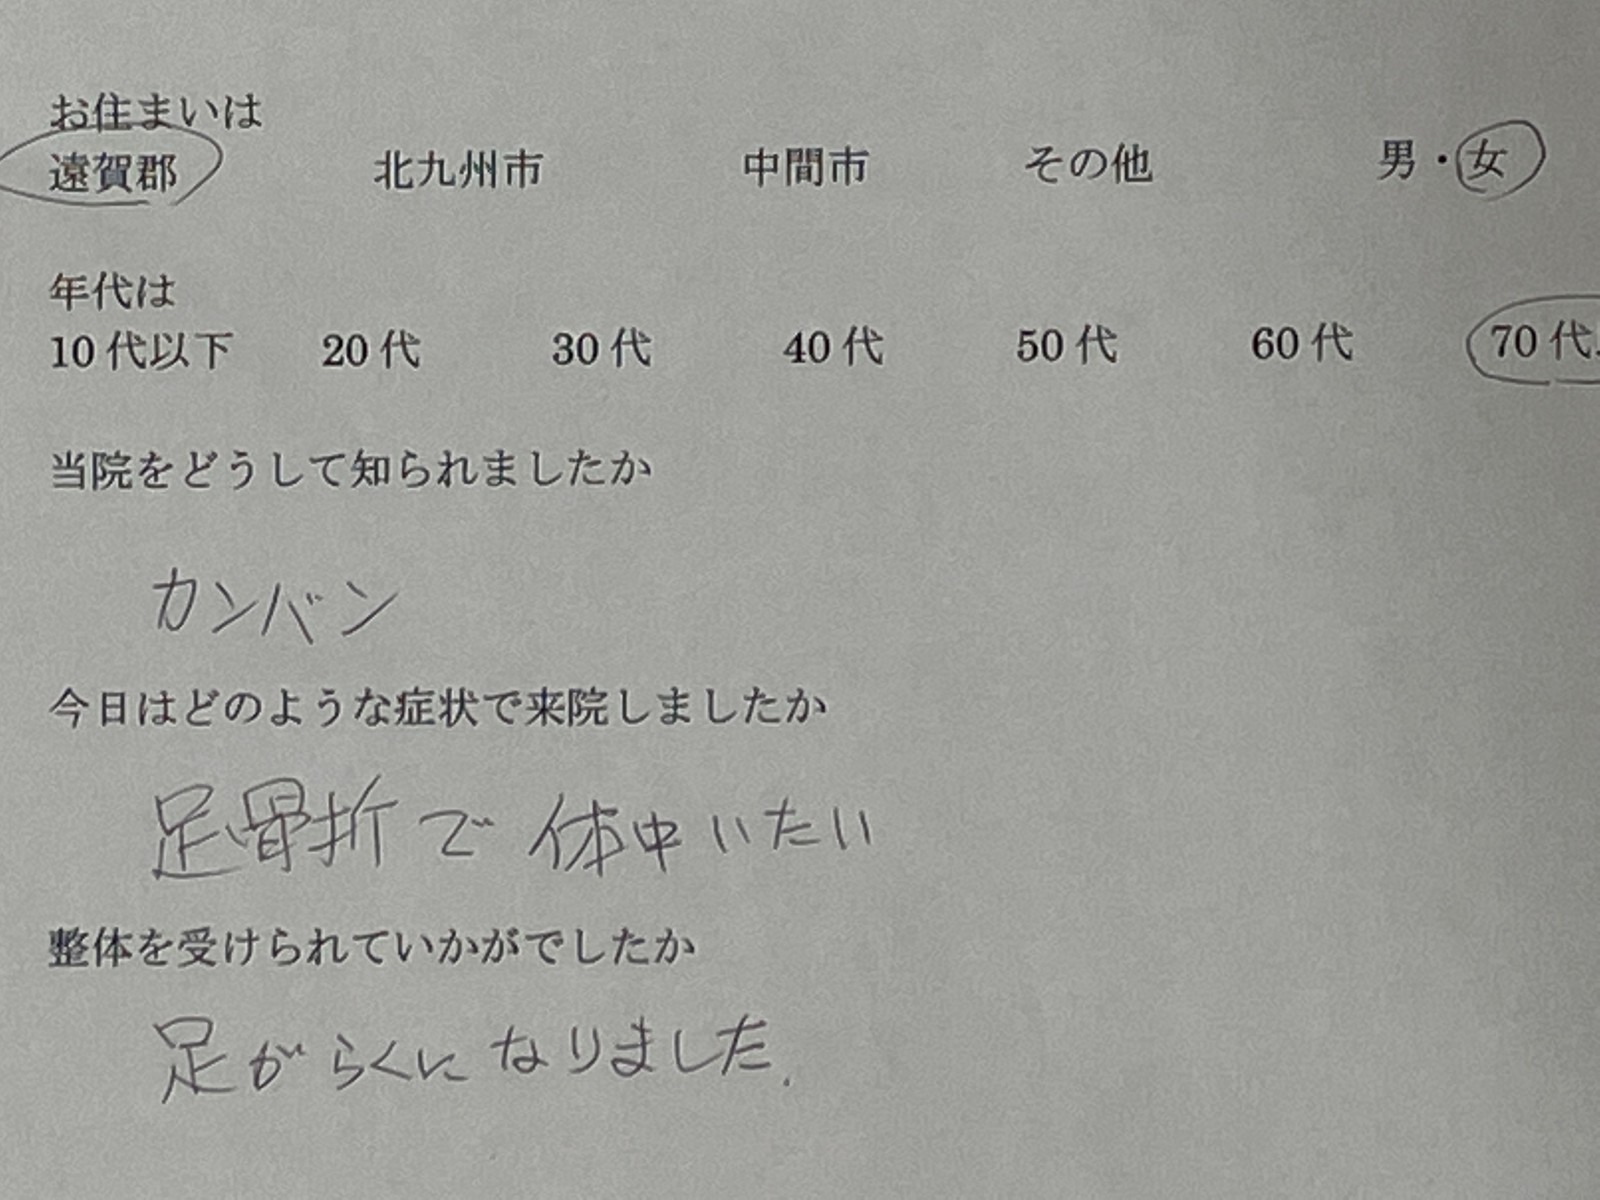 お住まいは
遠賀郡 北九州市 中間市 その他 男・女
年代は
10代以下 20代 30代 40代 50代 60代 70代
当院をどうして知られましたか
カンバン
今日はどのような症状で来院しましたか
足骨折で体中いたい
整体を受けられていかがでしたか
足がらくになりました.